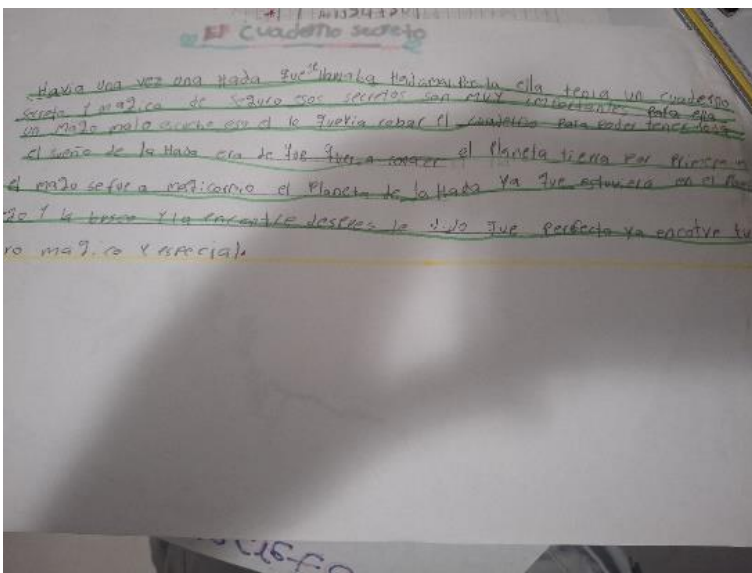 El cuaderno secreto
Havia una vez una Hada que se llamaba ella tenia un cuaderno
secreto y magica de seguro sos secretos son MUY importantes Para ella
un Mago malo escuche eso el le queria robar el cuaderno Para poder tener
el sueño de la Hada era de que queria conocer el Planeta tierra Por Primera
el mago se fue a el Planeta de la Hada Ya que estuviera en el
go Y la busco Y la despues le dijo que Perfecto ya encotre tu
ro magico Y especial.